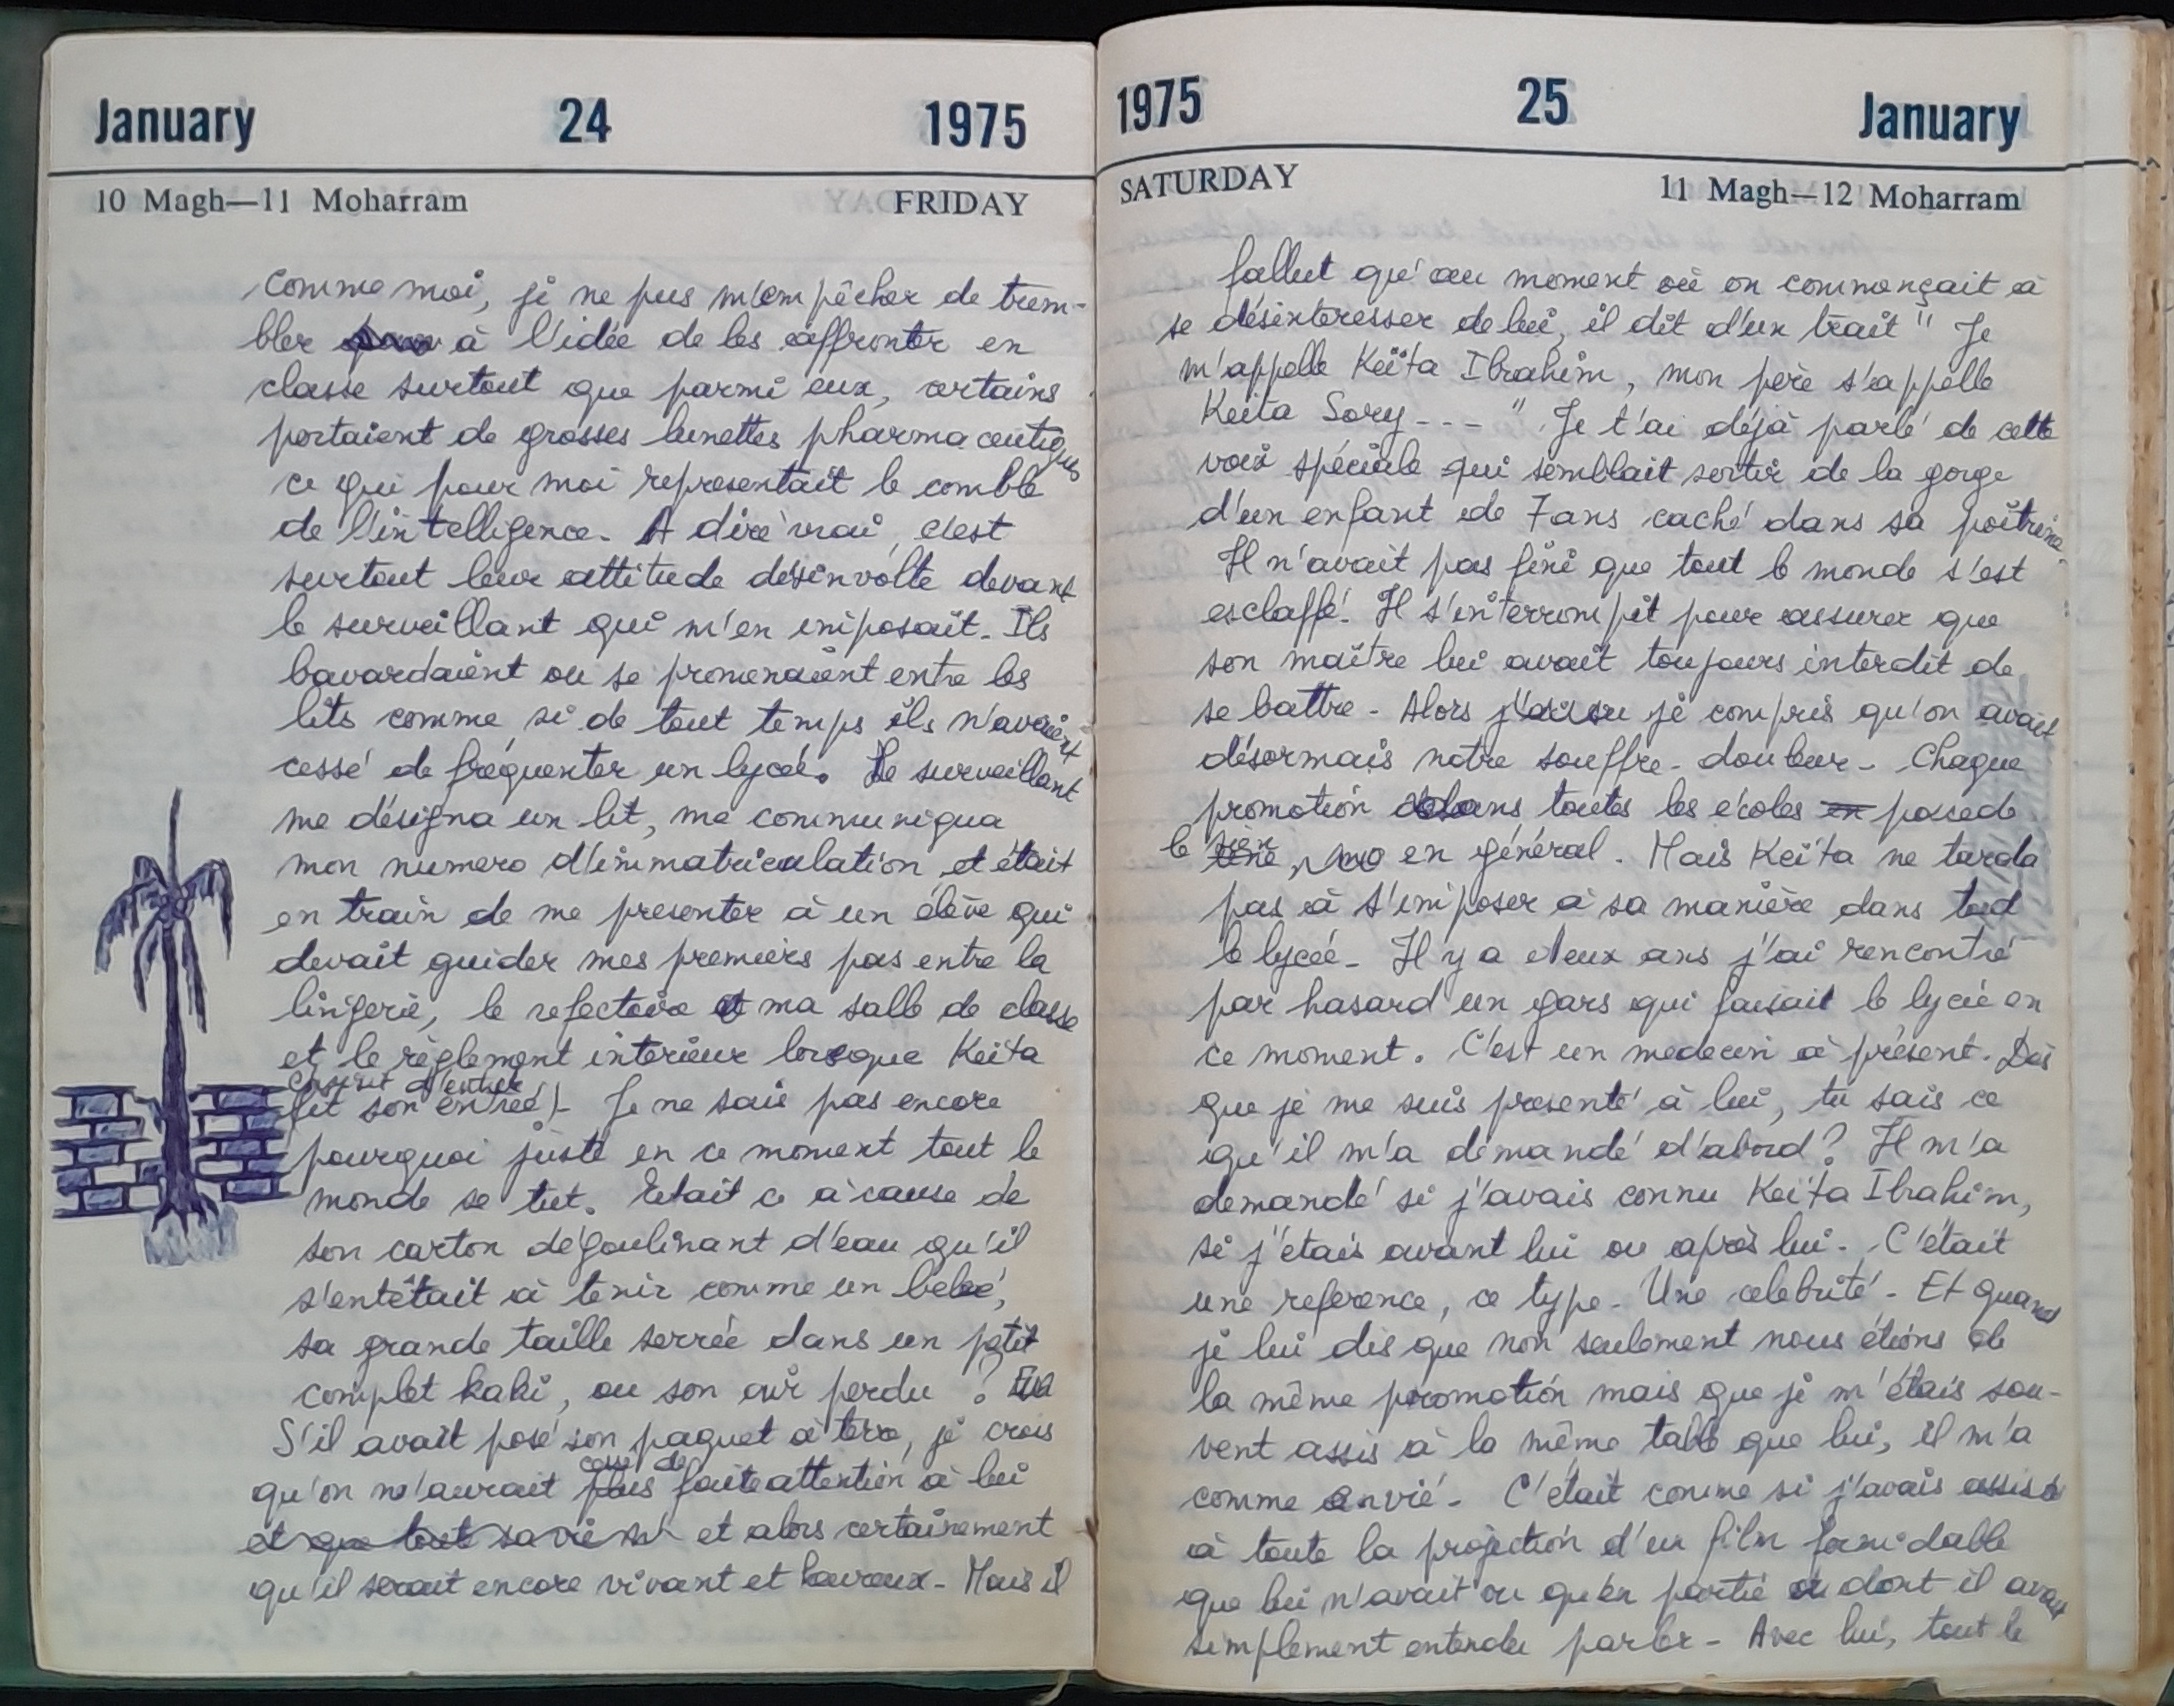 January 24 1975
10 Magh—11 Moharram FRIDAY
comme moi, je ne pus m'empêcher de trem-
bler à l'idée de les affronter en
classe surtout que parmi eux, certains
portaient de grosses lunettes pharmaceutiques
ce qui pour moi representait le comble
de l'intelligence. A dire vrai, c'est
surtout leur attitude désinvolte devant
le surveillant qui m'en imposait. Ils
bavardaient ou se promenaient entre les
lits comme si de tout temps ils n'avaient
cessé de fréquenter un lycée. Le surveillant
me désigna un lit, me communiqua
mon numero d'immatriculation et était
en train de me presenter à un élève qui
devait guider mes premiers pas entre la
lingerie, le refectoire et ma salle de classe
et le règlement interieur lorsque Keïta
d'entrer
fit son entrée). Je ne sais pas encore
pourquoi juste en ce moment tout le
monde se tut. Etait ce à cause de
son carton dégoulinant d'eau qu'il
s'entêtait à tenir comme un bébé,
sa grande taille serrée dans un petit
complet kaki, ou son air perdu ?
S'il avait posé son paquet à terre, je crois
cessé de
qu'on n'aurait plus faite attention à lui
et que tout sa vie et alors certainement
qu'il serait encore vivant et heureux. Mais il
1975 25 January
SATURDAY 11 Magh—12 Moharram
fallut qu'au moment où on commençait à
se désintéresser de lui, il dît d'un trait " Je
m'appelle Keïta Ibrahim, mon père s'appelle
Keïta Sory - - - " Je t'ai déjà parlé de cette
voix spéciale qui semblait sortir de la gorge
d'un enfant de 7 ans caché dans sa poitrine.
Il n'avait pas fini que tout le monde s'est
esclaffé. Il s'interrompit pour assurer que
son maître lui avait toujours interdit de
se battre. Alors je compris qu'on avait
désormais notre souffre-douleur. Chaque
promotion dans toutes les écoles en possede
le sien en général. Mais Keïta ne tarda
pas à s'imposer à sa manière dans tout
le lycée. Il y a deux ans j'ai rencontré
par hasard un gars qui faisait le lycée en
ce moment. C'est un medecin à présent. Dès
que je me suis presenté à lui, tu sais ce
qu'il m'a demandé d'abord ? Il m'a
demandé si j'avais connu Keïta Ibrahim,
si j'étais avant lui ou après lui. C'était
une reference, ce type. Une celebrité. Et quand
je lui dis que non seulement nous étions de
la même promotion mais que je m'étais sou-
vent assis à la même table que lui, il m'a
comme envié. C'était comme si j'avais assisté
à toute la projection d'un film formidable
que lui n'avait vu qu'en partie ou dont il avait
simplement entendu parler. Avec lui, tout le